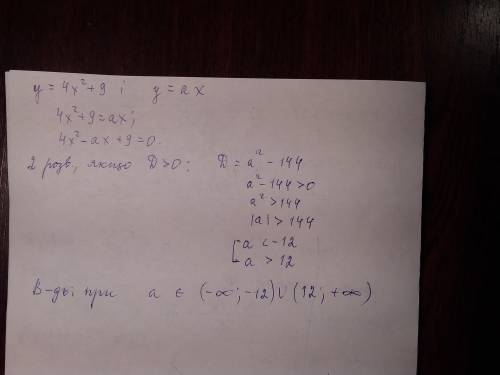 y = 4x² + 9 і y = ax
4x² + 9 = ax;
4x² - ax + 9 = 0.
2 розв., якщо D > 0: D = a² - 144
a² - 144 > 0
a² > 144
|a| > 144
[ a < -12
a > 12
В-дь: при a ∈ (-∞; -12) ∪ (12; +∞)